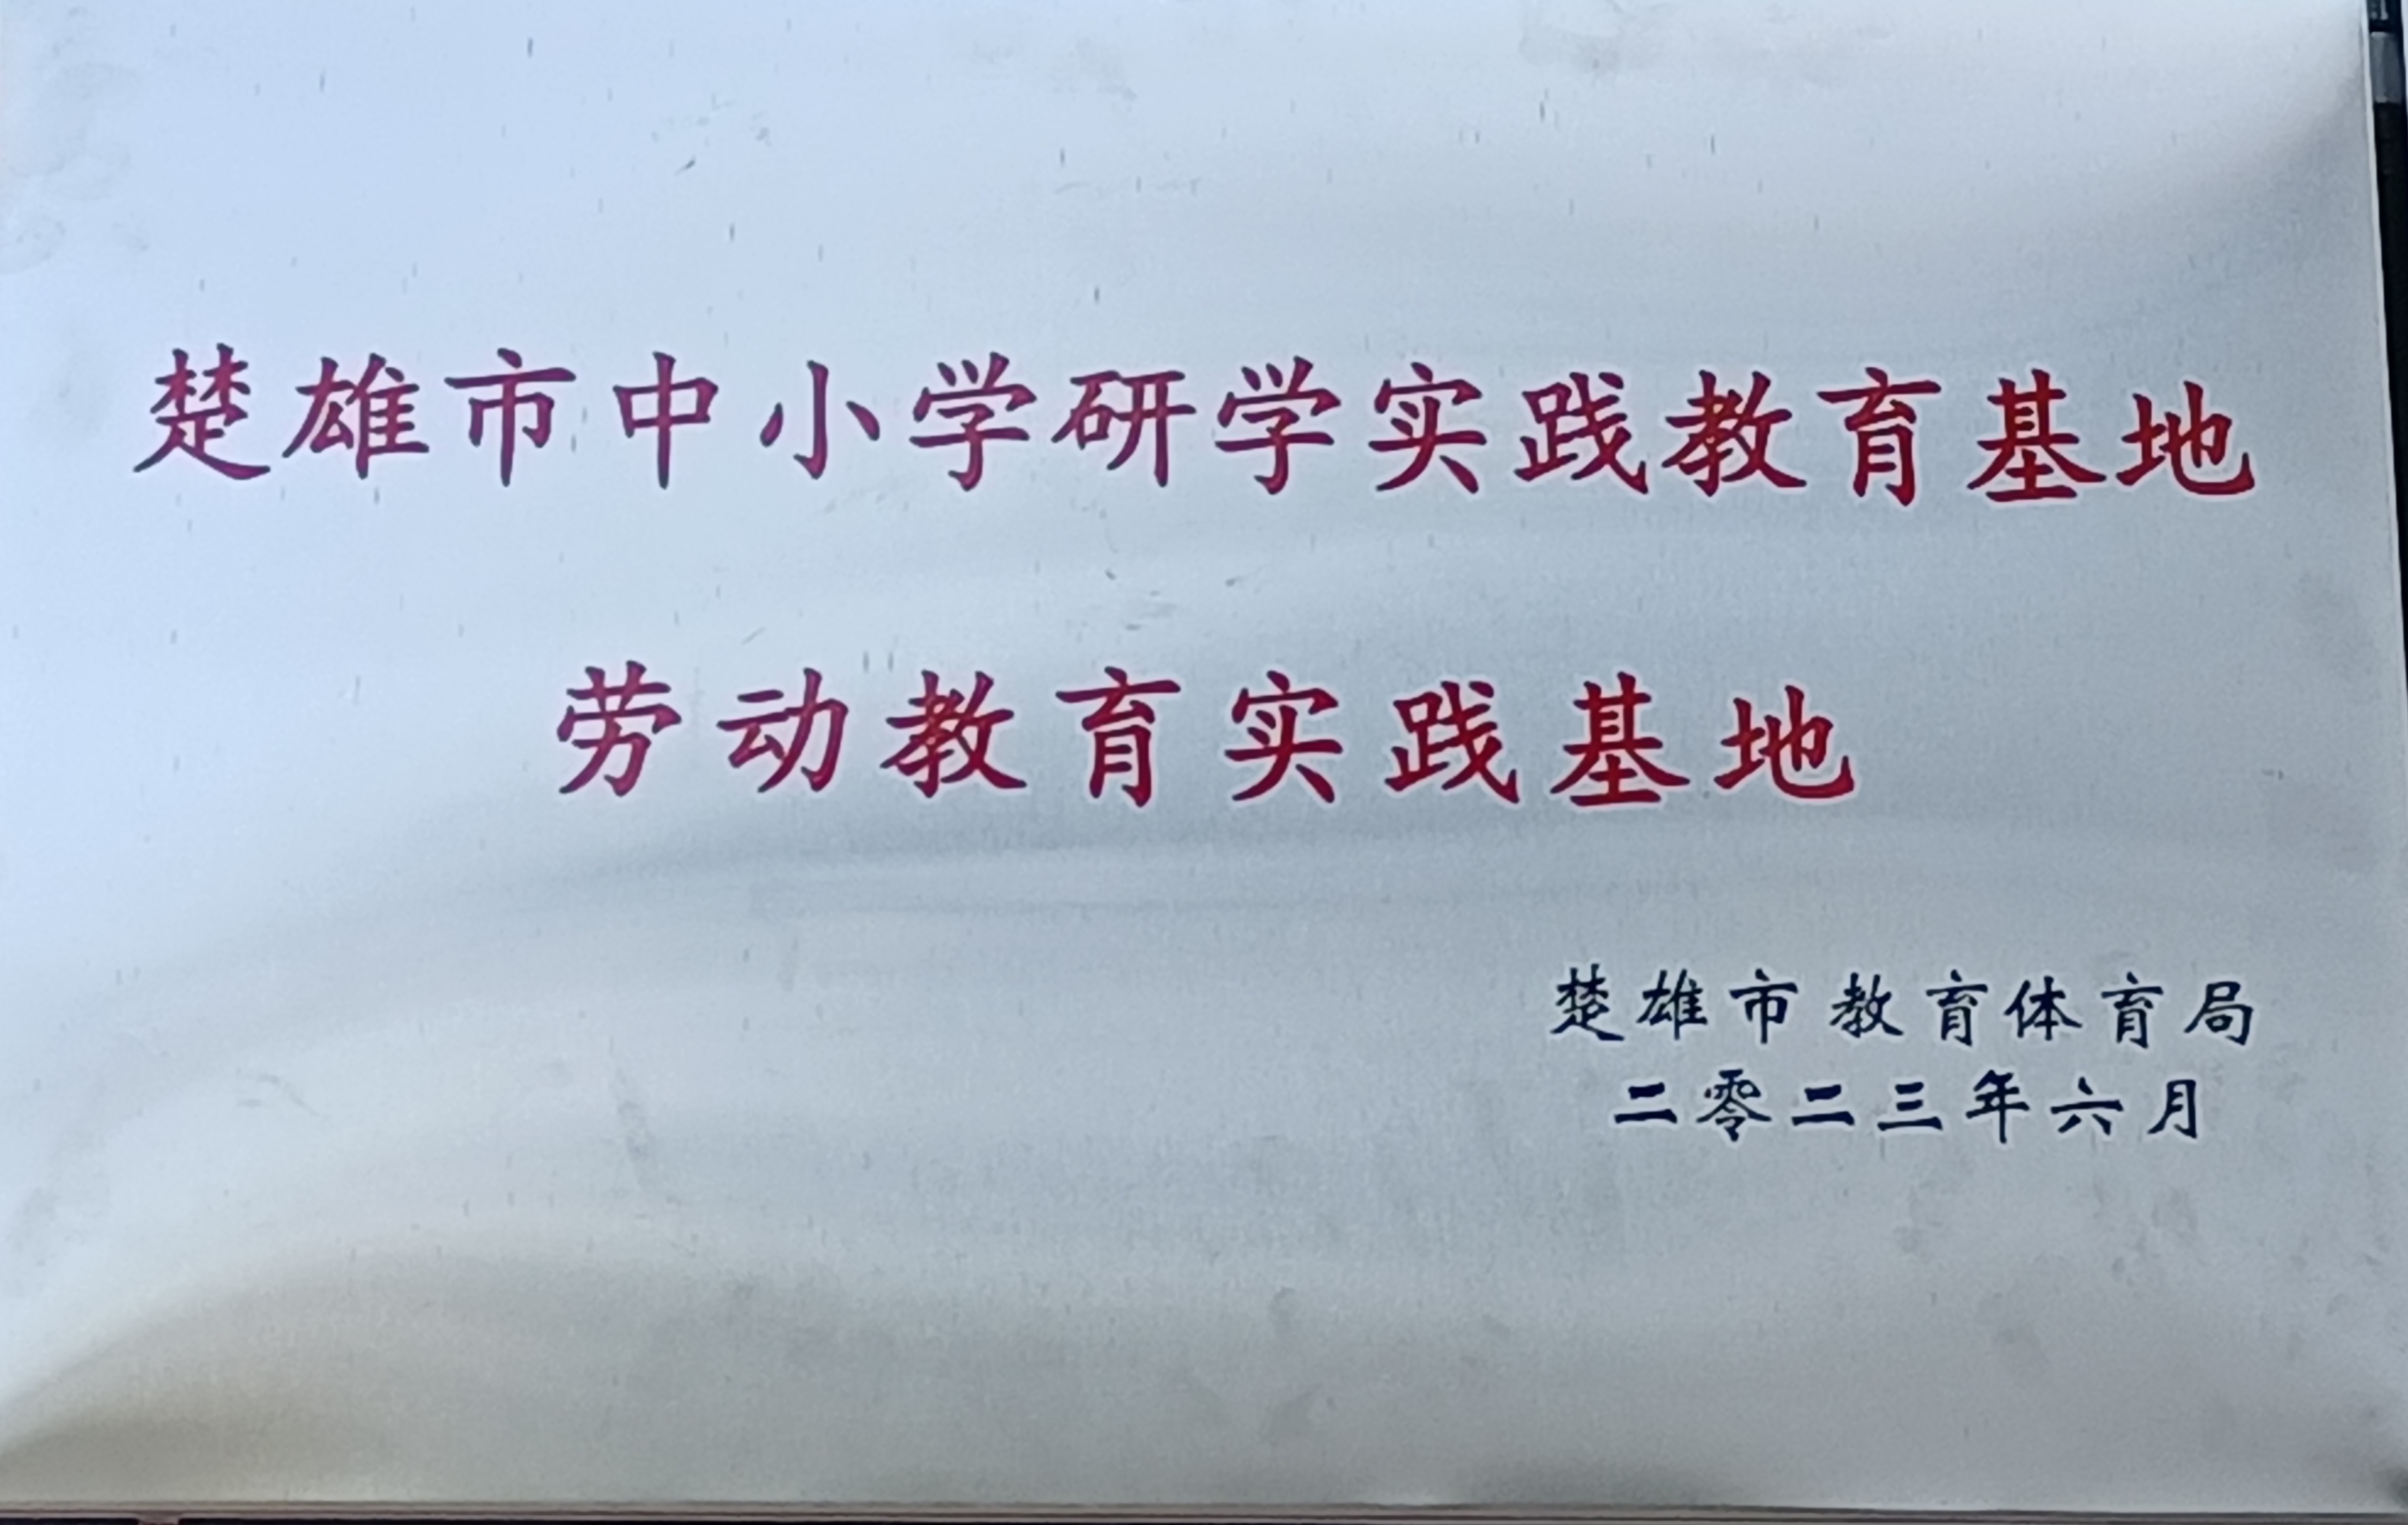 楚雄市中小学研学实践教育基地
劳动教育实践基地
楚雄市教育体育局
二零二三年六月